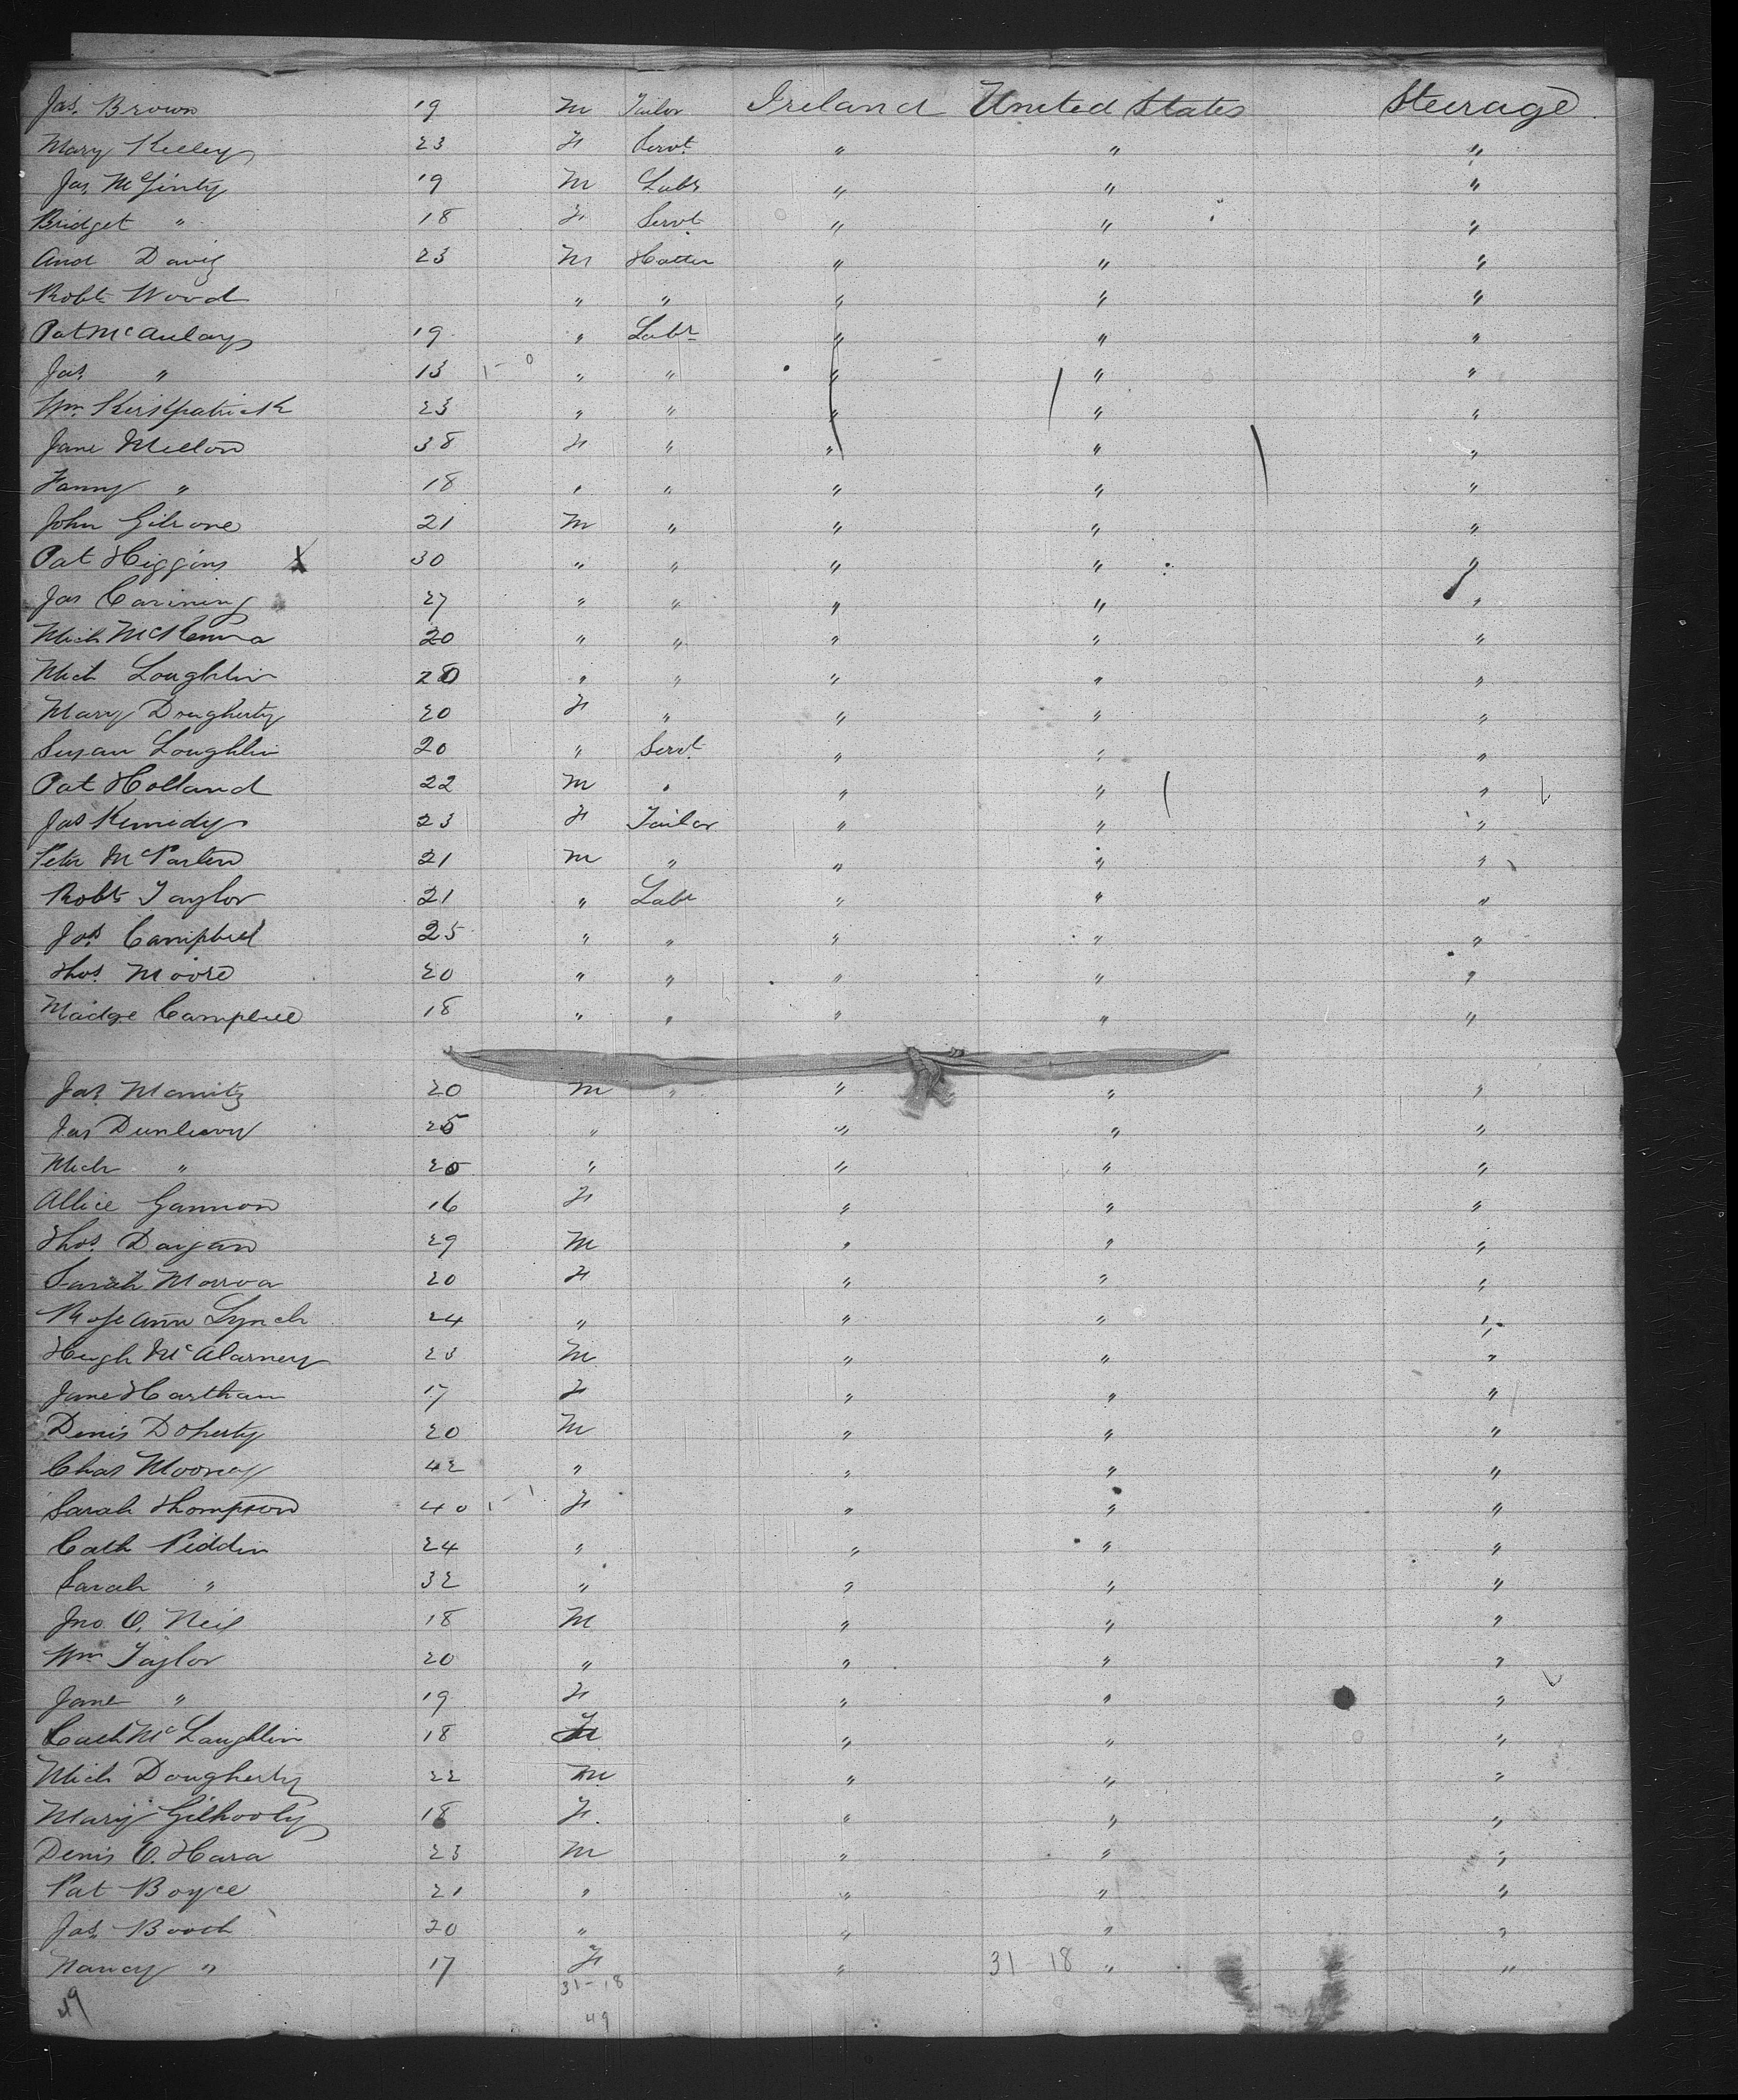 Jas. Brown 19 M Tailor Ireland United States Steerage
Mary Kelley 23 F Servt " " "
Jas. McGinty 19 M Labr " " "
Bridget " 18 F Servt " " "
And Davis 23 M Hatter " " "
Robt Wood " " " " "
Pat McAulay 19 " Labr " " "
Jas. " 13 1-0 " " " " "
Wm. Kirkpatrick 23 " " " " "
Jane Mellon 38 F " " " "
Fanny " 18 " " " " "
John Gilrone 21 M " " " "
Pat Higgins X 30 " " " " "
Jas 27 " " " " "
Mich McKenna 20 " " " " "
Mich Loughlin 20 " " " " "
Mary Dougherty 20 F " " " "
Susan Loughlin 20 " Servt " " "
Pat Holland 22 M " " " "
Jas Kennedy 23 F Tailor " " "
Peter McParlen 21 M " " " "
Robt Taylor 21 " Labr " " "
Jos. Campbell 25 " " " " "
Thos. Moore 20 " " " " "
Madge Campbell 18 " " " " "
Jas. 20 M " " " "
Jas Dunleavy 25 " " " "
Mich " 20 " " " "
Allice Gannon 16 F " " "
Thos. 29 M " " "
Sarah 20 F " " "
Rose Ann Lynch 24 " " " "
Hugh McAlarney 23 M " " "
Jane Harthan 17 F " " "
Denis Doherty 20 M " " "
Chas Mooney 42 " " " "
Sarah Thompson 40 1-1 F " " "
Cath Peddin 24 " " " "
Sarah " 32 " " " "
Jno O. Neil 18 M " " "
Wm Taylor 20 " " " "
Jane " 19 F " " "
Cath McLaughlin 18 F " " "
Mich Dougherty 22 M " " "
Mary Gilhooly 18 F. " " "
Denis O. Hara 23 M " " "
Pat Boyce 21 " " " "
Jas. Booth 20 " " " "
Nancy " 17 F " 31-18 " "
31-18
49 49